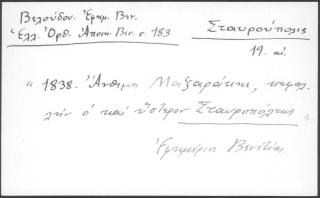 Βελούδον. Ἐφημ. Βεν.
Ἑλλ. Ὀρθ. Ἀποικ. Βεν. σ. 183
Σταυρούπολις
19. αἰ.
" 1838. Ἄνθιμος Μαζαράκης,
ὁ καὶ ὕστερον Σταυροπόλεως "
Ἐφημέριοι Βενετίας